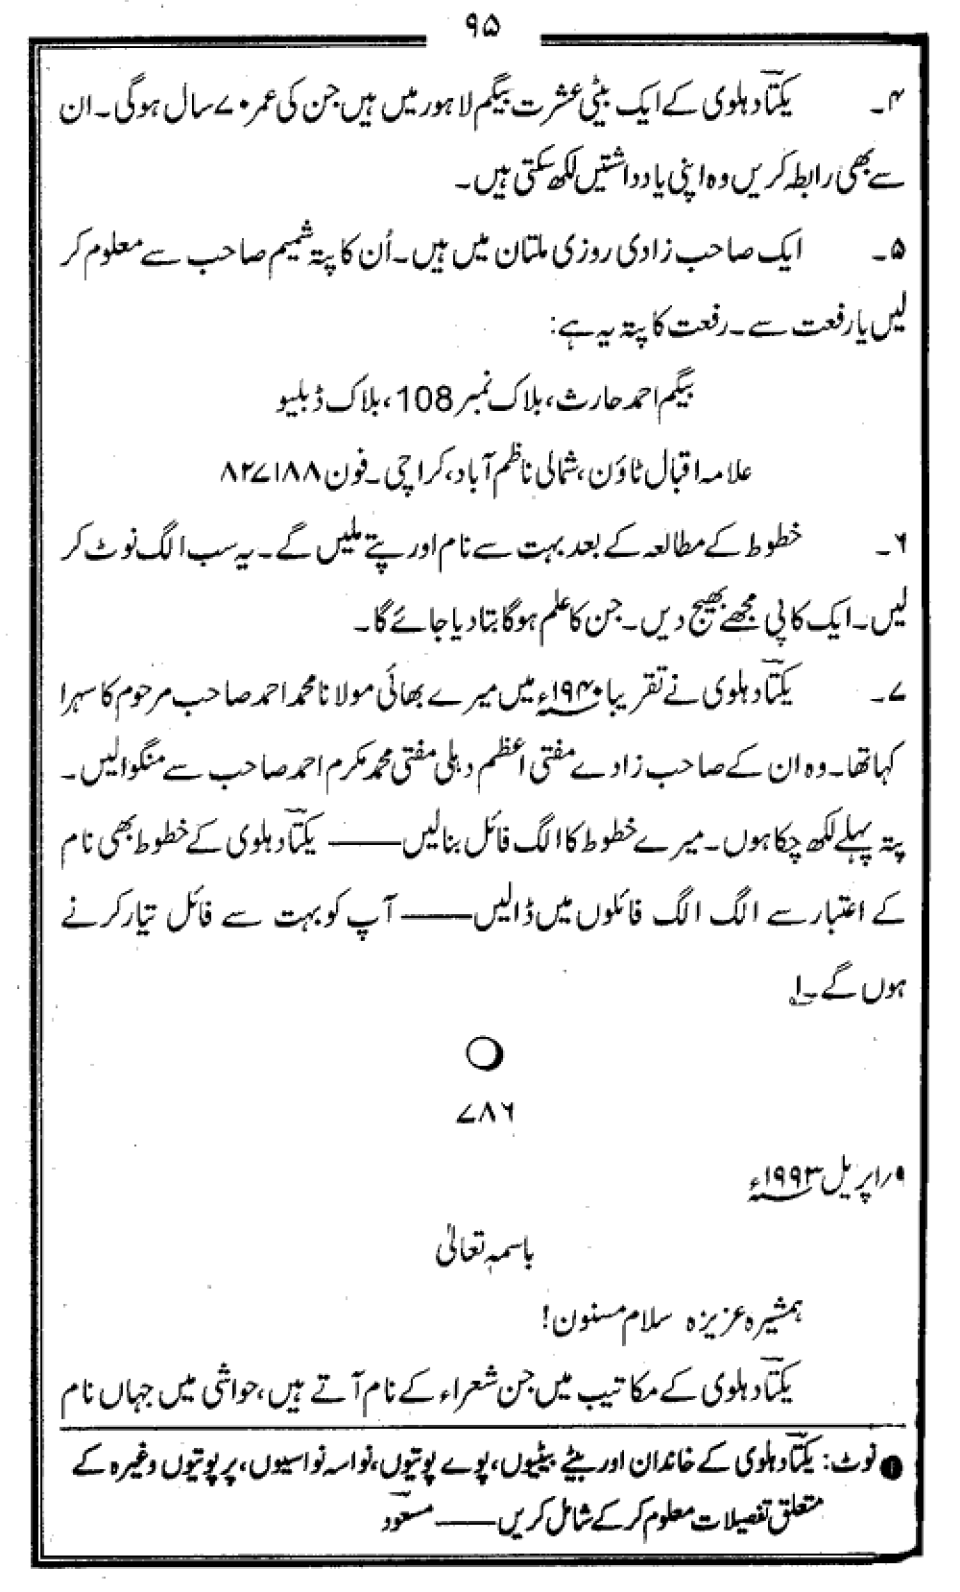 ۹۵
۴۔ یکتاؔ دہلوی کے ایک بیٹی عشرت بیگم لاہور میں ہیں جن کی عمر ۷۰ سال ہوگی۔ ان
سے بھی رابطہ کریں وہ اپنی یادداشتیں لکھ سکتی ہیں۔
۵۔ ایک صاحب زادی روزی ملتان میں ہیں۔ اُن کا پتہ شمیم صاحب سے معلوم کر
لیں یا رفعت سے۔ رفعت کا پتہ یہ ہے:
بیگم احمد حارث، بلاک نمبر 108، بلاک ڈبلیو
علامہ اقبال ٹاؤن، شمالی ناظم آباد، کراچی۔ فون ۸۲۷۱۸۸
۶۔ خطوط کے مطالعہ کے بعد بہت سے نام اور پتے ملیں گے۔ یہ سب الگ نوٹ کر
لیں۔ ایک کاپی مجھے بھیج دیں۔ جن کا علم ہوگا بتا دیا جائے گا۔
۷۔ یکتاؔ دہلوی نے تقریباً ۱۹۴۰ء میں میرے بھائی مولانا محمد احمد صاحب مرحوم کا سہرا
کہا تھا۔ وہ ان کے صاحب زادے مفتی اعظم دہلی مفتی محمد مکرم احمد صاحب سے منگوالیں۔
پتہ پہلے لکھ چکا ہوں۔ میرے خطوط کا الگ فائل بنالیں —— یکتاؔ دہلوی کے خطوط بھی نام
کے اعتبار سے الگ الگ فائلوں میں ڈالیں —— آپ کو بہت سے فائل تیار کرنے
ہوں گے۔۱
۷۸۶
۹/اپریل ۱۹۹۳ء
باسمہٖ تعالیٰ
ہمشیرہ عزیزہ سلام مسنون!
یکتاؔ دہلوی کے مکاتیب میں جن شعراء کے نام آتے ہیں، حواشی میں جہاں نام
❶ نوٹ: یکتاؔ دہلوی کے خاندان اور بیٹے بیٹیوں، پوے پوتیوں، نواسہ نواسیوں، پرپوتیوں وغیرہ کے
متعلق تفصیلات معلوم کر کے شامل کریں —— مسعودؔ